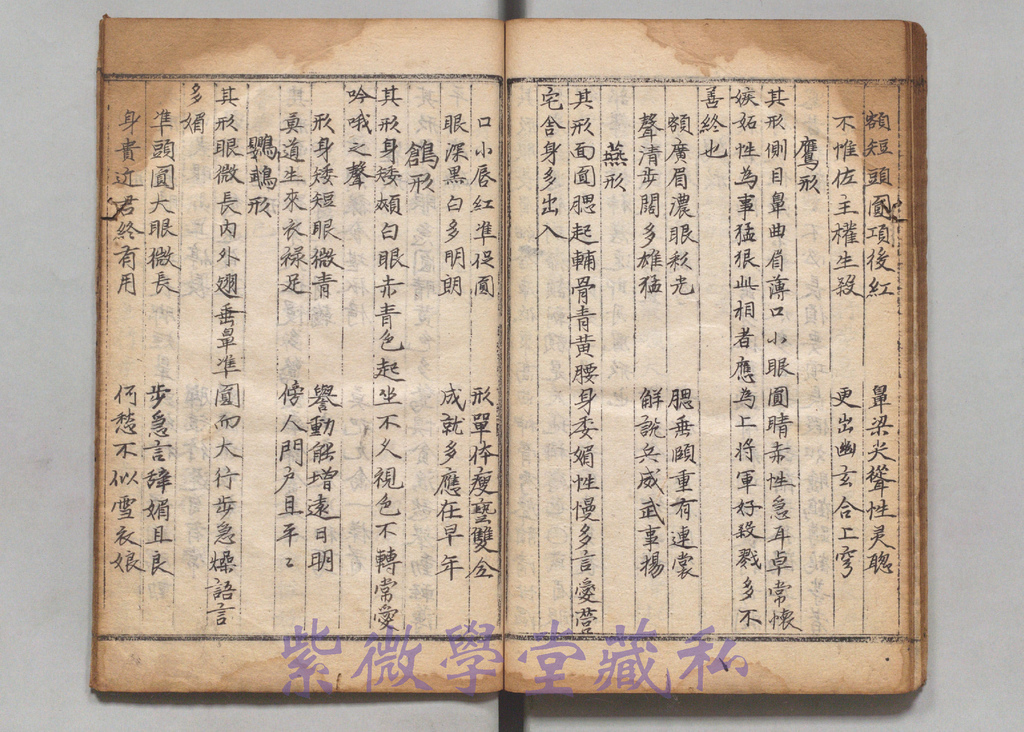 額短頭圓項後紅　鼻梁尖聳性灵聰
不惟佐主權生殺　更出幽玄合上穹
鷹形
其形側目鼻曲眉薄口小眼圓睛赤性急耳卓常懷
嫉妬性為事猛狠此相者應為上將軍好殺戮多不
善終也
額廣眉濃眼秋光　腮垂頤重有連裳
聲清步闊多雄猛　解説兵成武事揚
燕形
其形面圓腮起輔骨青黃腰身委媚性慢多言愛營
宅舍身多出入
口小唇紅準促圓　形單体瘦登雙全
眼深黑白多明朗　成就多應在早年
鴿形
其形身矮頰白眼赤青色起坐不久視色不轉常愛
吟哦之聲
形身矮短眼微青　譽動能增遠日明
真道生來衣祿足　傍人門户且平〻
鸚鵡形
其形眼微長內外翅垂鼻準圓而大行步急燥語言
多媚
準頭圓大眼微長　步急言辞媚且良
身貴近君終有用　何愁不似雪衣娘
紫微學堂藏私